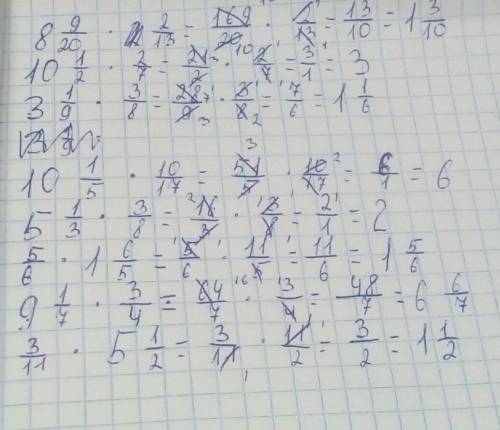 8 9/20 · 2/13 = 169/20 10 · 2/13 1 = 13/10 = 1 3/10
10 1/2 · 2/7 = 21/2 3 · 2/7 1 = 3/1 = 3
3 1/9 · 3/8 = 28/9 7 3 · 3/8 1 2 = 7/6 = 1 1/6
10 1/5 · 10/17 = 3 51/5 · 10/17 2 = 6/1 = 6
5 1/3 · 3/8 = 2 16/3 · 3/8 1 = 2/1 = 2
5/6 · 1 6/5 = 1 5/6 · 11/5 1 = 11/6 = 1 5/6
9 1/7 · 3/4 = 64/7 16 · 3/4 = 48/7 = 6 6/7
3/11 · 5 1/2 = 3/11 1 · 11/2 1 = 3/2 = 1 1/2